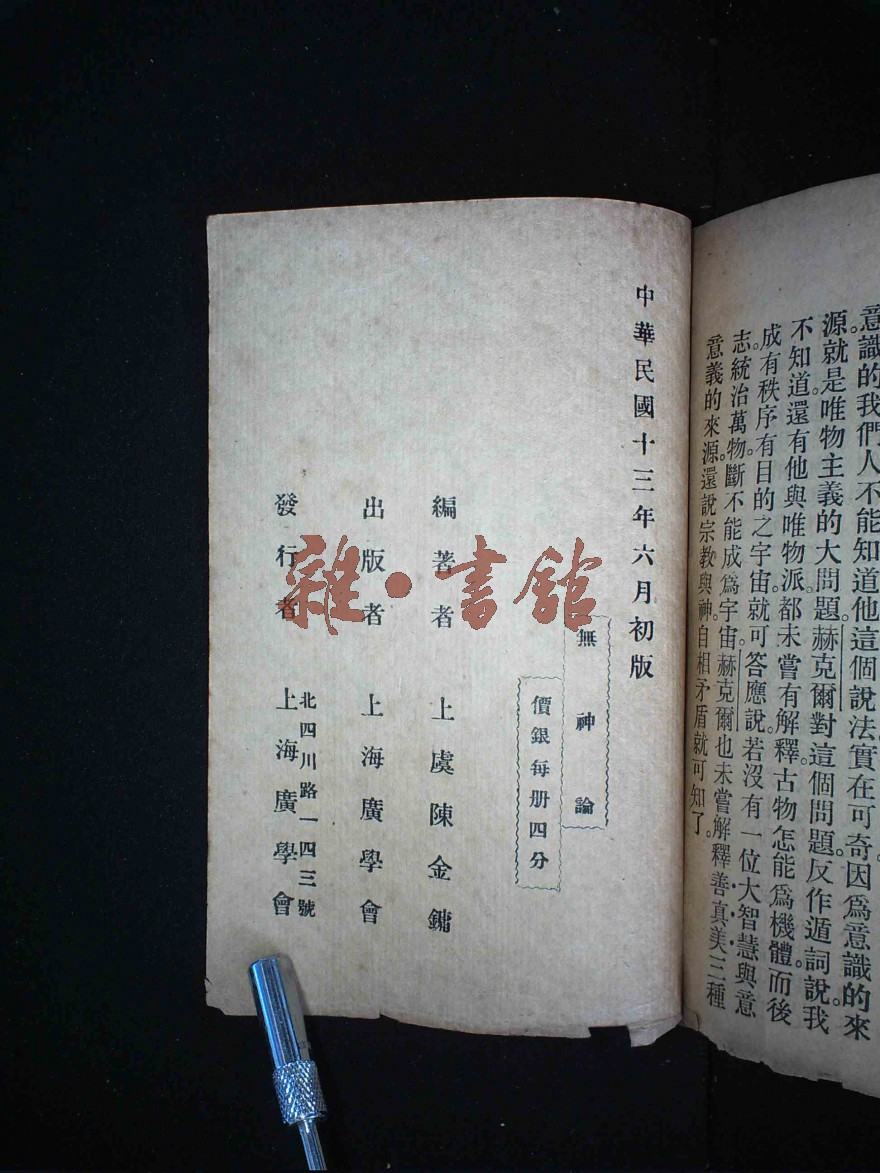 意識的我們人不能知道他這個說法實在可奇。因爲意識的來
源。就是唯物主義的大問題。赫克爾對這個問題。反作遁詞說。我
不知道。還有他與唯物派。都未嘗有解釋。古物怎能爲機體。而後
成有秩序有目的之宇宙。就可答應說。若沒有一位大智慧與意
志統治萬物。斷不能成爲宇宙。赫克爾也未嘗解釋善眞美三種
意義的來源。還說宗教與神。自相矛盾。就可知了。
中華民國十三年六月初版
無神論
價銀每册四分
編著者 上虞陳金鏞
出版者 上海廣學會
北四川路一四三號
發行者 上海廣學會
雜·書館